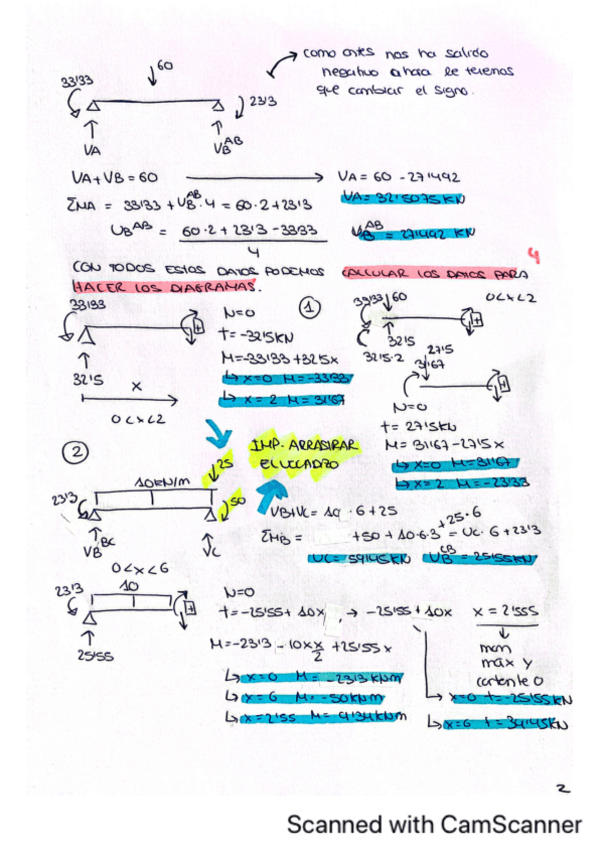 como antes nos ha salido
negativo ahora le tenemos
que cambiar el signo.
33'33
60
23'3
VA
VB^AB
VA + VB = 60
VA = 60 - 27'1492
ΣMA = 33'33 + VB^AB · 4 = 60·2 + 23'3
VA = 32'5075 KN
VB^AB = 60·2 + 23'3 - 33'33 / 4
VB^AB = 27'1492 KN
4
CON TODOS ESTOS DATOS PODEMOS CALCULAR LOS DATOS PARA
HACER LOS DIAGRAMAS.
33'33
32'5
x
0<x<2
N=0
t=-32'5KN
M=-33'33+32'5x
↳ x=0 M=-33'33
↳ x=2 M=31'67
1
33'33
60
0<x<2
32'5
32'5·2
27'5
31'67
N=0
t=27'5KN
M=31'67-27'5x
↳ x=0 M=31'67
↳ x=2 M=-23'33
2
IMP. ARRASTRAR
EL VOLADIZO
25
10KN/m
50
23'3
VB^BC
VC
VB+VC= 10 · 6 + 25
ΣMB = +50 + 10·6·3 +25·6 = VC·6 + 23'3
VC = 59'45KN VB^CB = 25'55KN
0<x<6
23'3
10
25'55
N=0
t=-25'55+10x → -25'55+10x x=2'555
M=-23'3 - 10x·x/2 + 25'55x
mom
máx y
cortante 0
↳ x=0 M=-23'3KNm
↳ x=6 M=-50KNm
↳ x=2'55 M=9'34KNm
↳ x=0 t=-25'55KN
↳ x=6 t=34'45KN
2
Scanned with CamScanner